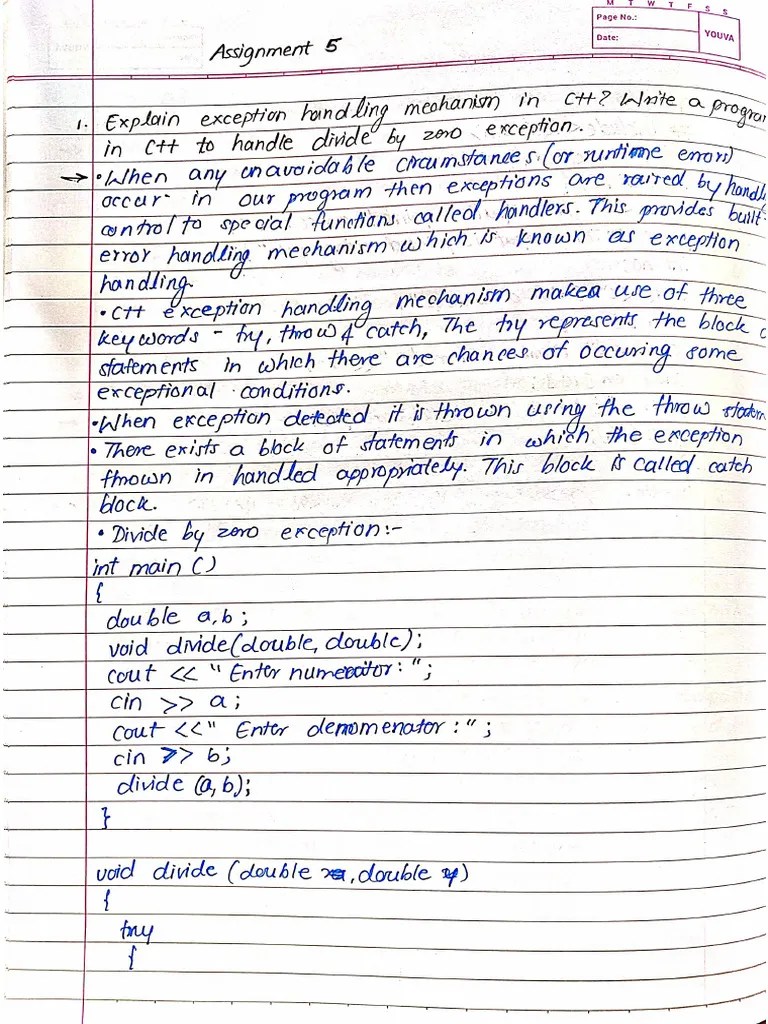 M T W T F S S
Page No.:
Date:
YOUVA
Assignment 5
1. Explain exception handling mechanism in C++? Write a program
in C++ to handle divide by zero exception.
→ • When any unavoidable circumstances (or runtime errors)
occur in our program then exceptions are raired by handli
control to special functions called handlers. This provides built-
error handling mechanism which is known as exception
handling.
• C++ exception handling mechanism makes use of three
keywords - try, throw & catch, The try represents the block o
statements in which there are chances of occuring some
exceptional conditions.
• When exception detected it is thrown using the throw statem
• There exists a block of statements in which the exception
thrown in handled appropriately. This block is called catch
block.
• Divide by zero exception:-
int main ()
{
double a,b;
void divide(double, double);
cout << " Enter numerator: ";
cin >> a;
cout <<" Enter denomenator :";
cin >> b;
divide (a,b);
}
void divide (double , double )
{
try
{